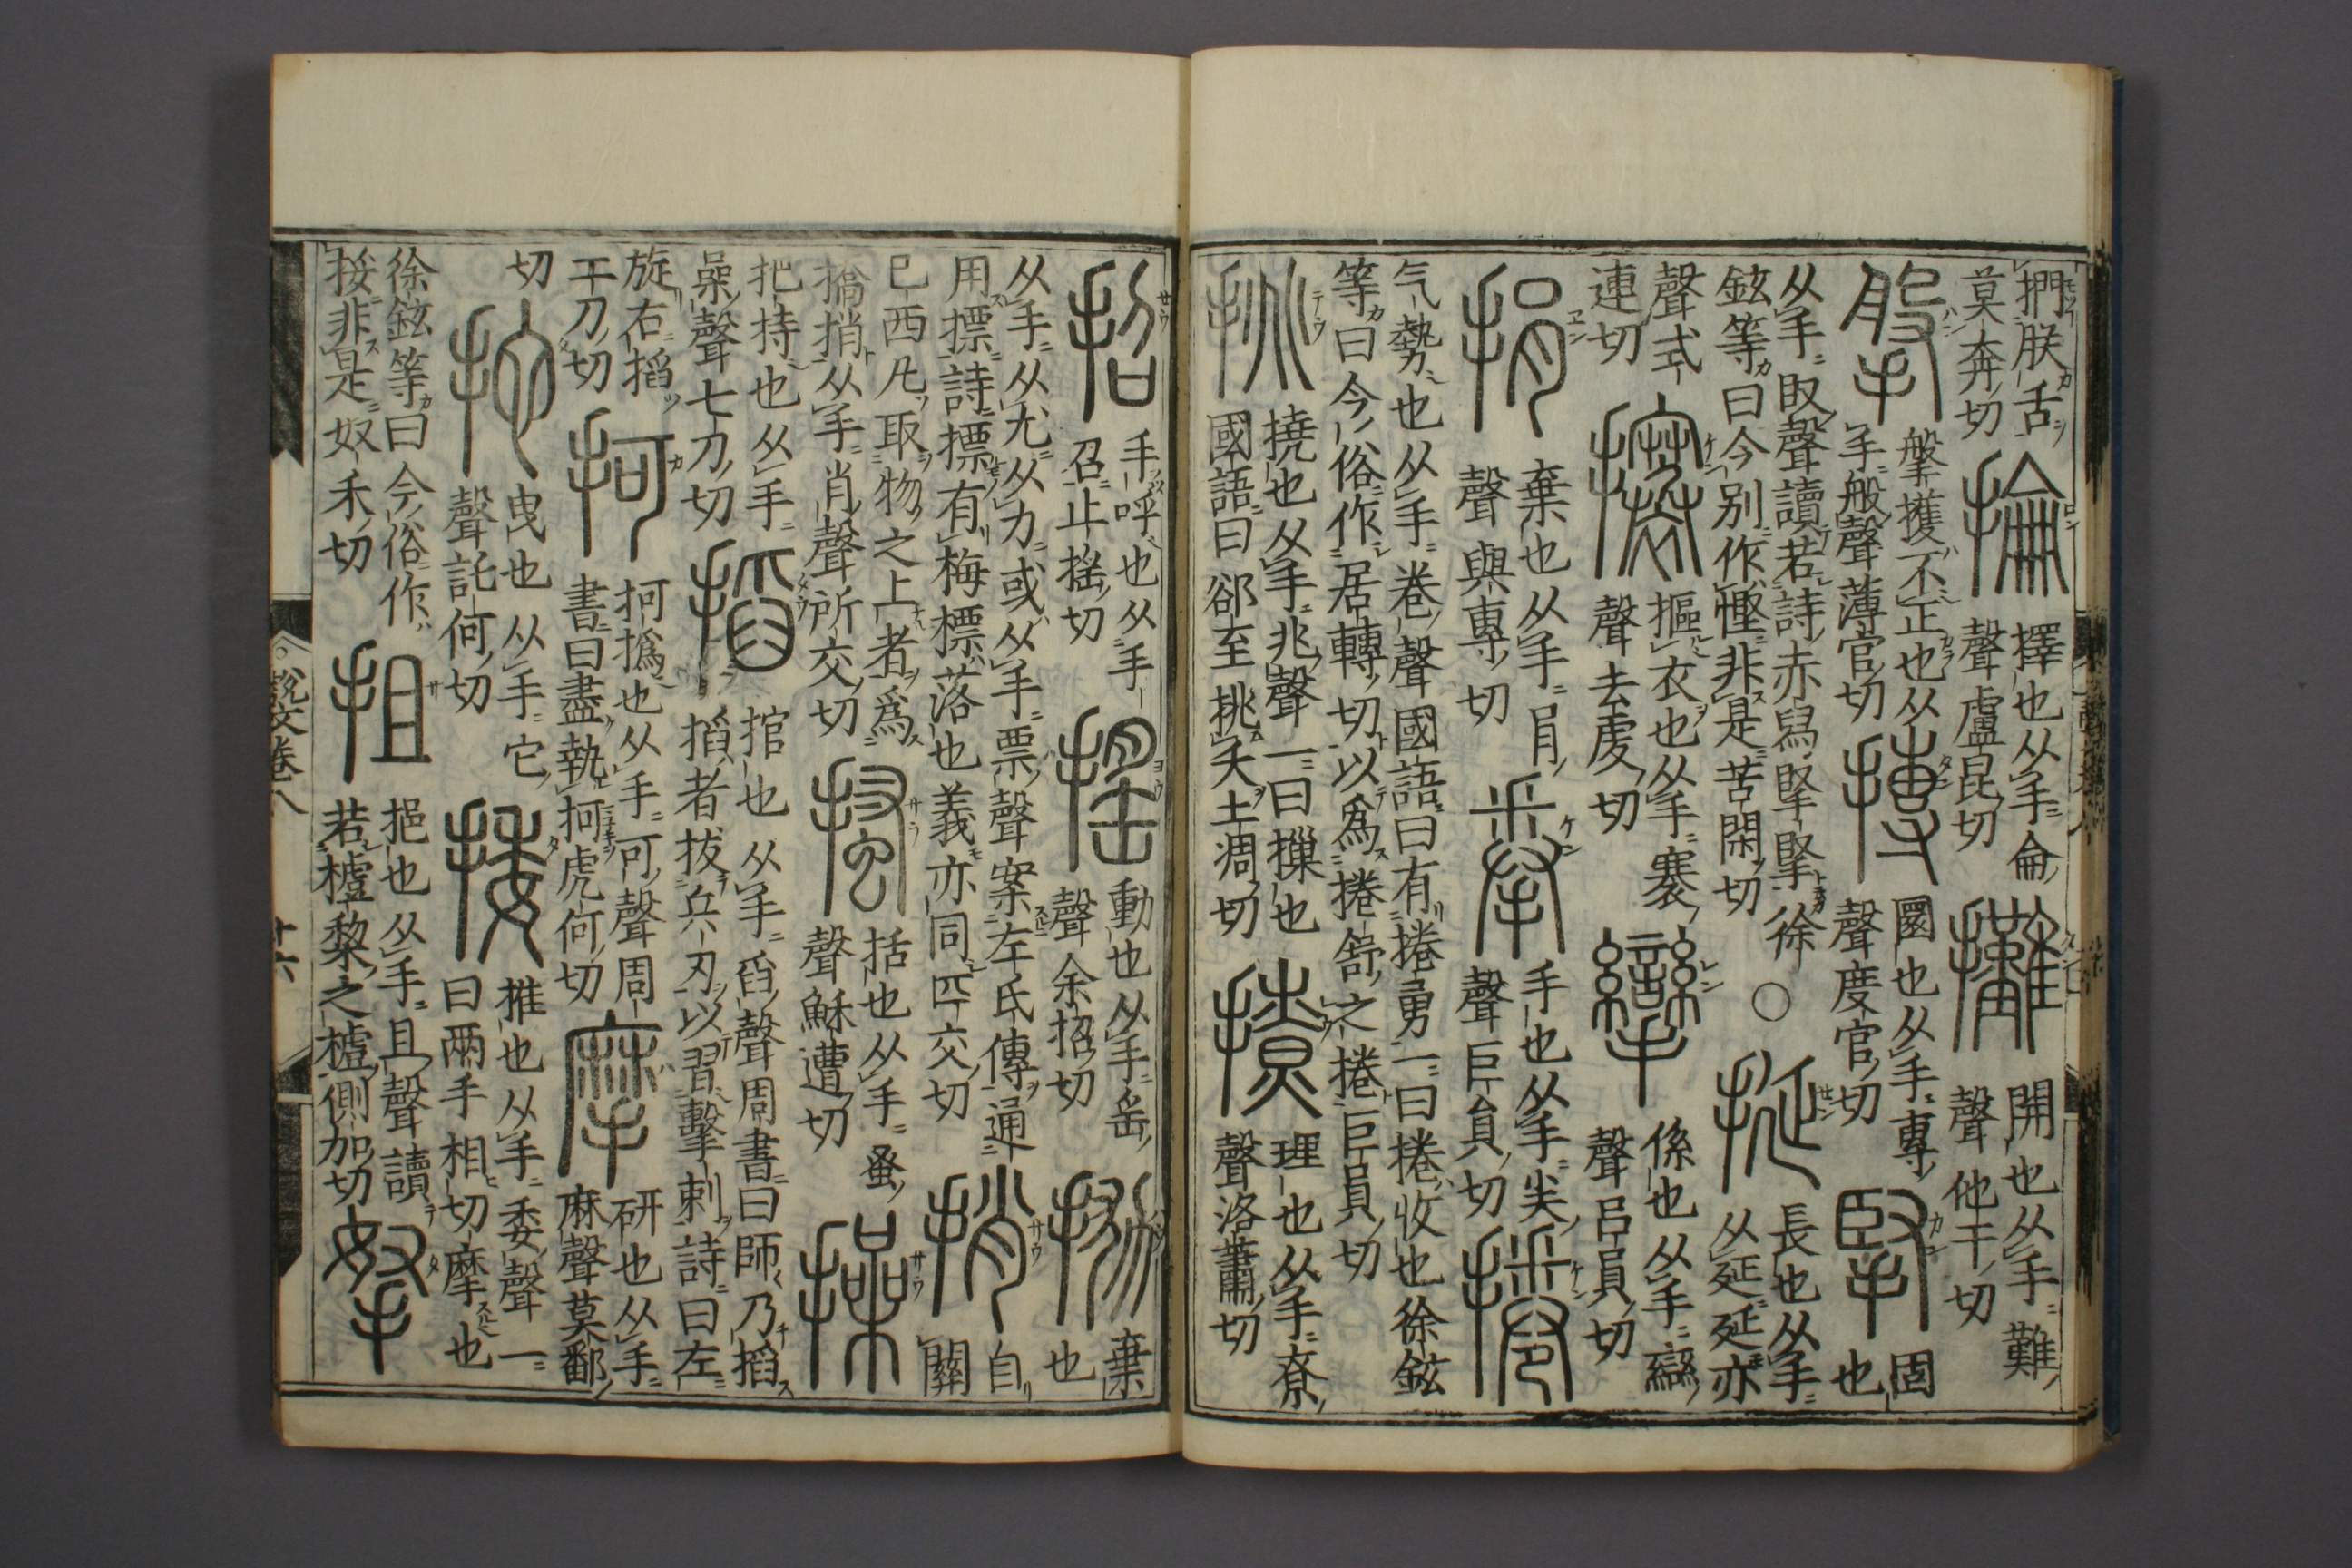 捫朕舌
莫奔切
掄
擇也从手侖
聲盧昆切
攤
開也从手難
聲他干切
搫
搫擭不正也从
手般聲薄官切
摶
圜也从手專
聲度官切
掔
固
也
从手臤聲讀若詩赤舄掔掔徐
鉉等曰今別作慳非是苦閑切
○
挻
長也从手
从㢟㢟亦
聲式
連切
攐
摳衣也从手褰
聲去虔切
攣
係也从手䜌
聲呂員切
捐
棄也从手肙
聲與專切
𢮏
手也从手𢍏
聲巨員切
捲
气勢也从手卷聲國語曰有捲勇一曰捲收也徐鉉
等曰今俗作居轉切以爲捲舒之捲巨員切
挑
撓也从手兆聲一曰摷也
國語曰郤至挑天土凋切
撩
理也从手尞
聲洛蕭切
招
手呼也从手
召止搖切
搖
動也从手䍃
聲余招切
抛
棄
也
从手从尤从力或从手票聲案左氏傳通
用摽詩摽有梅摽落也義亦同匹交切
捎
自
關
巳西凡取物之上者爲
撟捎从手肖聲所交切
搔
括也从手蚤
聲穌遭切
操
把持也从手
喿聲七刀切
搯
捾也从手舀聲周書曰師乃搯
搯者拔兵刃以習擊刺詩曰左
旋右搯
土刀切
抲
抲撝也从手可聲周
書曰盡執抲虎何切
摩
研也从手
麻聲莫鄱
切
拕
曳也从手它
聲託何切
捼
推也从手委聲一
曰兩手相切摩也
徐鉉等曰今俗作
挼非是奴禾切
抯
挹也从手且聲讀
若樝棃之樝側加切
拏
說文卷八
十六